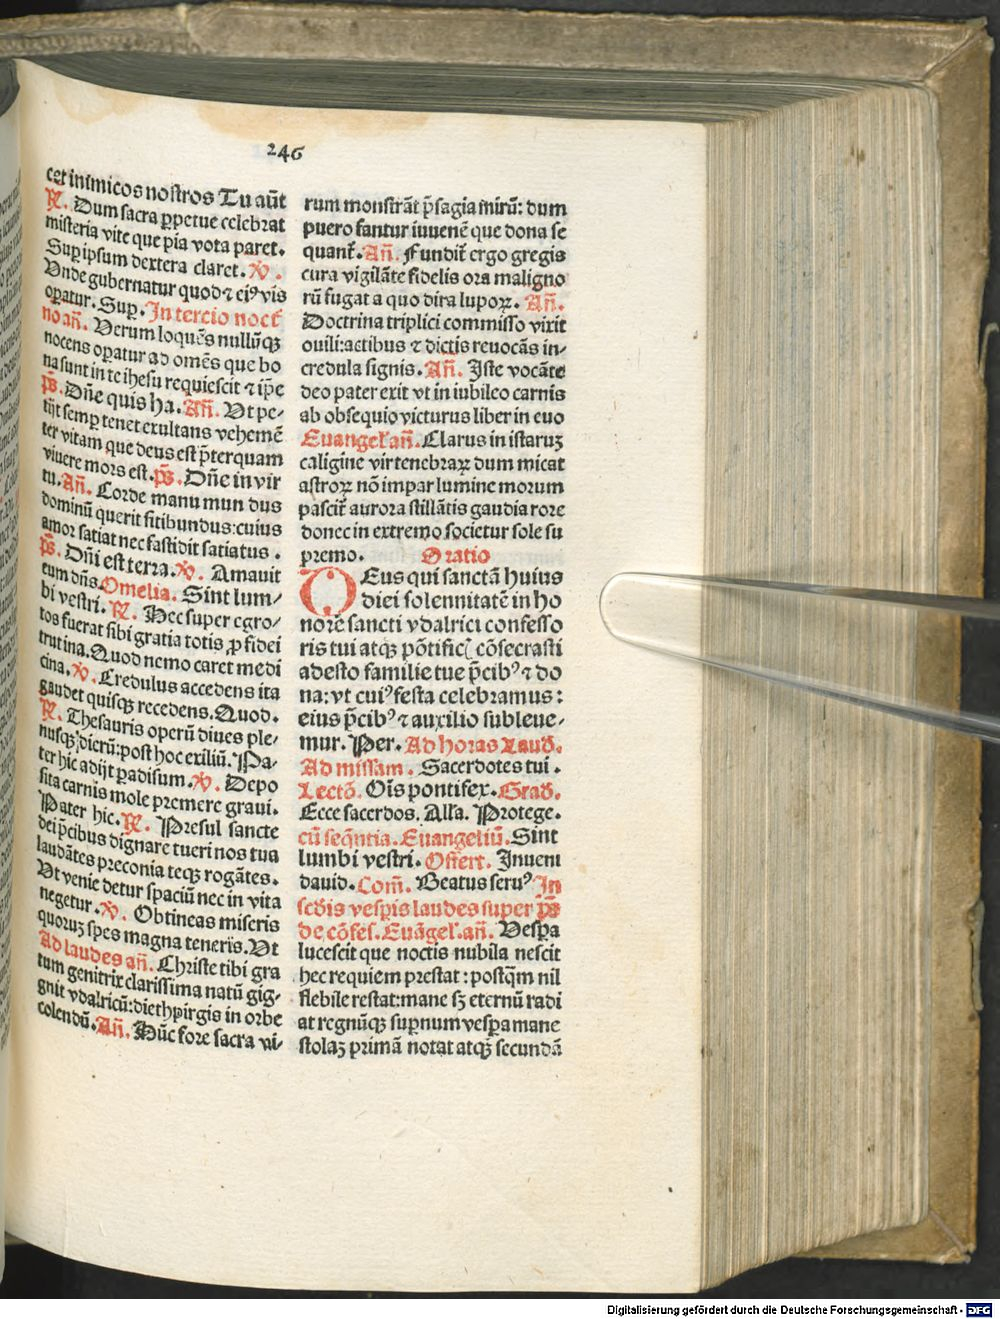 246
cet inimicos nostros Tu aūt
℟. Dum sacra ꝑpetue celebrat
misteria vite que pia vota paret.
Suꝑ ipsum dextera claret. ℣.
Vnde gubernatur quod ⁊ eiꝰ vis
oꝑatur. Suꝑ. In tercio noct̄
no an̄. Verum loquēs nullūqꝫ
nocens oꝑatur ad omēs que bo
na sunt in te ihesu requiescit ⁊ ip̄e
p̄s. Dn̄e quis ha. An̄. Vt pe-
tijt semꝑ tenet exultans vehemē
ter vitam que deus est p̄terquam
viuere mors est. p̄s. Dn̄e in vir
tu. An̄. Corde manu mun dus
dominū querit sitibundus: cuius
amor satiat nec fastidit satiatus.
p̄s. Dn̄i est terra. ℣. Amauit
eum dn̄s. Omelia. Sint lum-
bi vestri. ℟. Hec super egro-
tos fuerat sibi gratia totis ꝓ fidei
trutina. Quod nemo caret medi
cina. ℣. Credulus accedens ita
gaudet quisqꝫ recedens. Quod.
℟. Thesauris operū diues ple-
nusqꝫ dierū: post hoc exiliū. Pa-
ter hic adijt ꝑadisum. ℣. Depo
sita carnis mole premere graui.
Pater hic. ℟. Presul sancte
dei p̄cibus dignare tueri nos tua
laudātes preconia teqꝫ rogātes.
Vt venie detur spaciū nec in vita
negetur. ℣. Obtineas miseris
quoruꝫ spes magna teneris. Vt
Ad laudes an̄. Christe tibi gra
tum genitrix clarissima natū gig-
gnit vdalricū: diethpirgis in orbe
colendū. An̄. Hūc fore sacra vi-
rum monstrāt p̄sagia mirū: dum
puero fantur iuuenē que dona se
quant᷑. An̄. Fundit᷑ ergo gregis
cura vigilāte fidelis ora maligno
rū fugat a quo dira lupoꝝ. An̄.
Doctrina triplici commisso vixit
ouili: actibus ⁊ dictis reuocās in-
credula signis. An̄. Iste vocāte
deo pater exit vt in iubileo carnis
ab obsequio victurus liber in euo
Euangel᷑ an̄. Clarus in istaruꝫ
caligine vir tenebraꝝ dum micat
astroꝝ nō impar lumine morum
pascit᷑ aurora stillātis gaudia rore
donec in extremo societur sole su
premo. Oratio
DEus qui sanctā huius
diei solennitatē in ho
norē sancti vdalrici confesso
ris tui atqꝫ pōntificꝭ cōsecrasti
adesto familie tue p̄cibꝰ ⁊ do
na: vt cuiꝰ festa celebramus:
eius p̄cibꝰ ⁊ auxilio subleue-
mur. Per. Ad horas Laud̄.
Ad missam. Sacerdotes tui.
Lectō. Ois pontifex. Grad̄.
Ecce sacerdos. All'a. Protege.
cū seqn̄tia. Euangeliū. Sint
lumbi vestri. Offert. Inueni
dauid. Com̄. Beatus seruꝰ In
scd̄is vesꝑis laudes super p̄s
de cōfes. Euāgel᷑. an̄. Vesꝑa
lucescit que noctis nubila nescit
hec requiem prestat: postq̄m nil
flebile restat: mane sꝫ eternū radi
at regnūqꝫ suꝑnum vesꝑa mane
stolaꝫ primā notat atqꝫ secundā
Digitalisierung gefördert durch die Deutsche Forschungsgemeinschaft - DFG